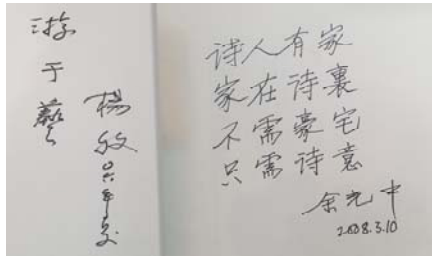 游
于
藝
楊
牧
诗人有家
家在诗裏
不需豪宅
只需诗意
余光中
2008.3.10